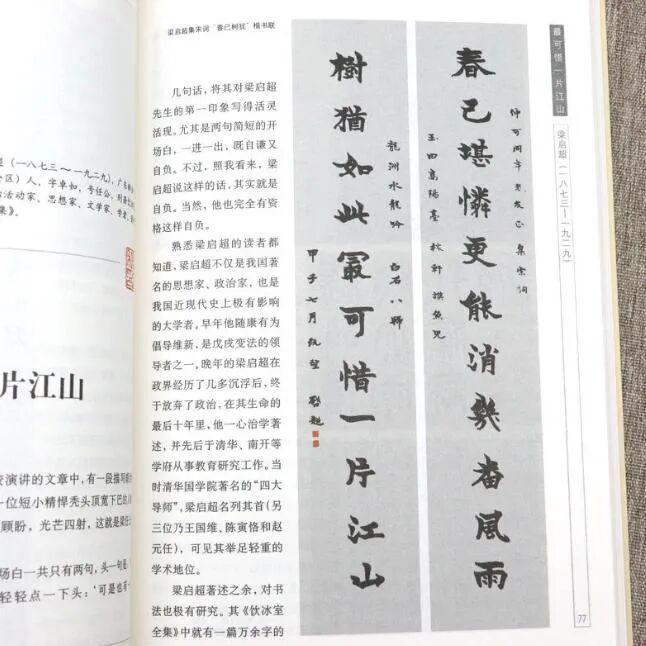 （一八七三～一九二九），广东
区）人，字卓如，号任公，
活动家、思想家、文学家、学者、
集》。
片江山
演讲的文章中，有一段描写
一位短小精悍秃头顶宽下巴的
顾盼，光芒四射，这就是梁任
场白一共只有两句，头一句是：
轻轻点一下头：‘可是也有
梁启超集宋词“春已树犹”楷书联
几句话，将其对梁启超
先生的第一印象写得活灵
活现。尤其是两句简短的开
场白，一进一出，既自谦又
自负。不过，照我看来，梁
启超说这样的话，其实就是
自负。当然，他也完全有资
格这样自负。
熟悉梁启超的读者都
知道，梁启超不仅是我国著
名的思想家、政治家，也是
我国近现代史上极有影响
的大学者。早年他随康有为
倡导维新，是戊戌变法的领
导者之一。晚年的梁启超在
政界经历了几多沉浮后，终
于放弃了政治，在其生命的
最后十年里，他一心治学著
述，并先后于清华、南开等
学府从事教育研究工作。当
时清华国学院著名的“四大
导师”，梁启超名列其首（另
三位乃王国维、陈寅恪和赵
元任），可见其举足轻重的
学术地位。
梁启超著述之余，对书
法也极有研究。其《饮冰室
全集》中就有一篇万余字的
仲可同年老友正 集宋词
春已堪憐更能消幾番風雨
玉田高陽臺 稼軒摸魚兒
龍洲水龍吟 白石八歸
樹猶如此最可惜一片江山
甲子七月既望 啟超
最可惜一片江山
梁启超（一八七三～一九二九）
77